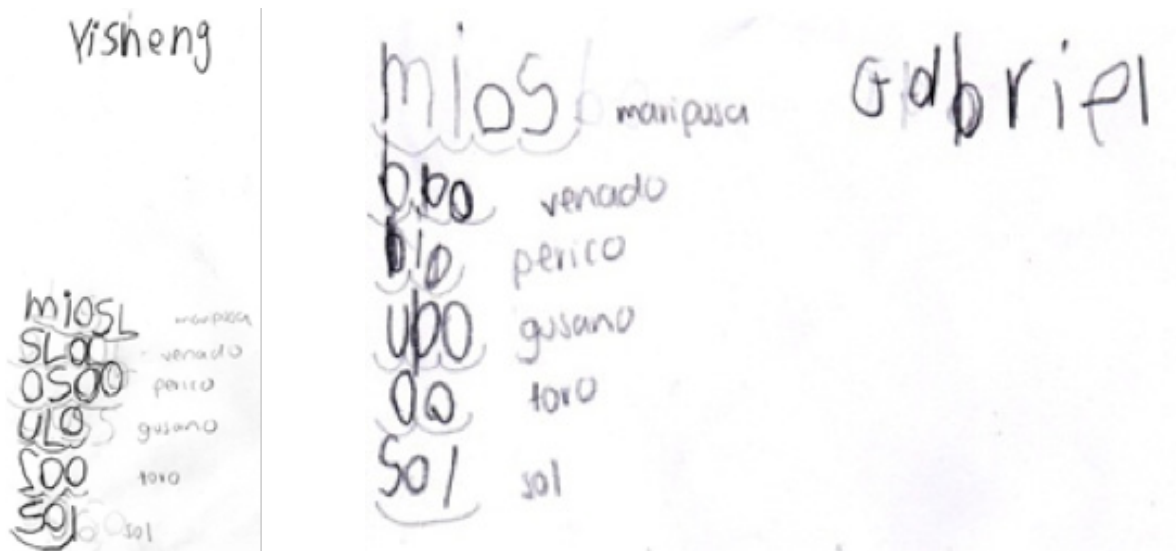 Yisheng
miosL mariposa
SLOO venado
OSOO perico
ULO gusano
SOO toro
Sol sol
Gabriel
mios mariposa
bbo venado
bio perico
upo gusano
oo toro
Sol sol